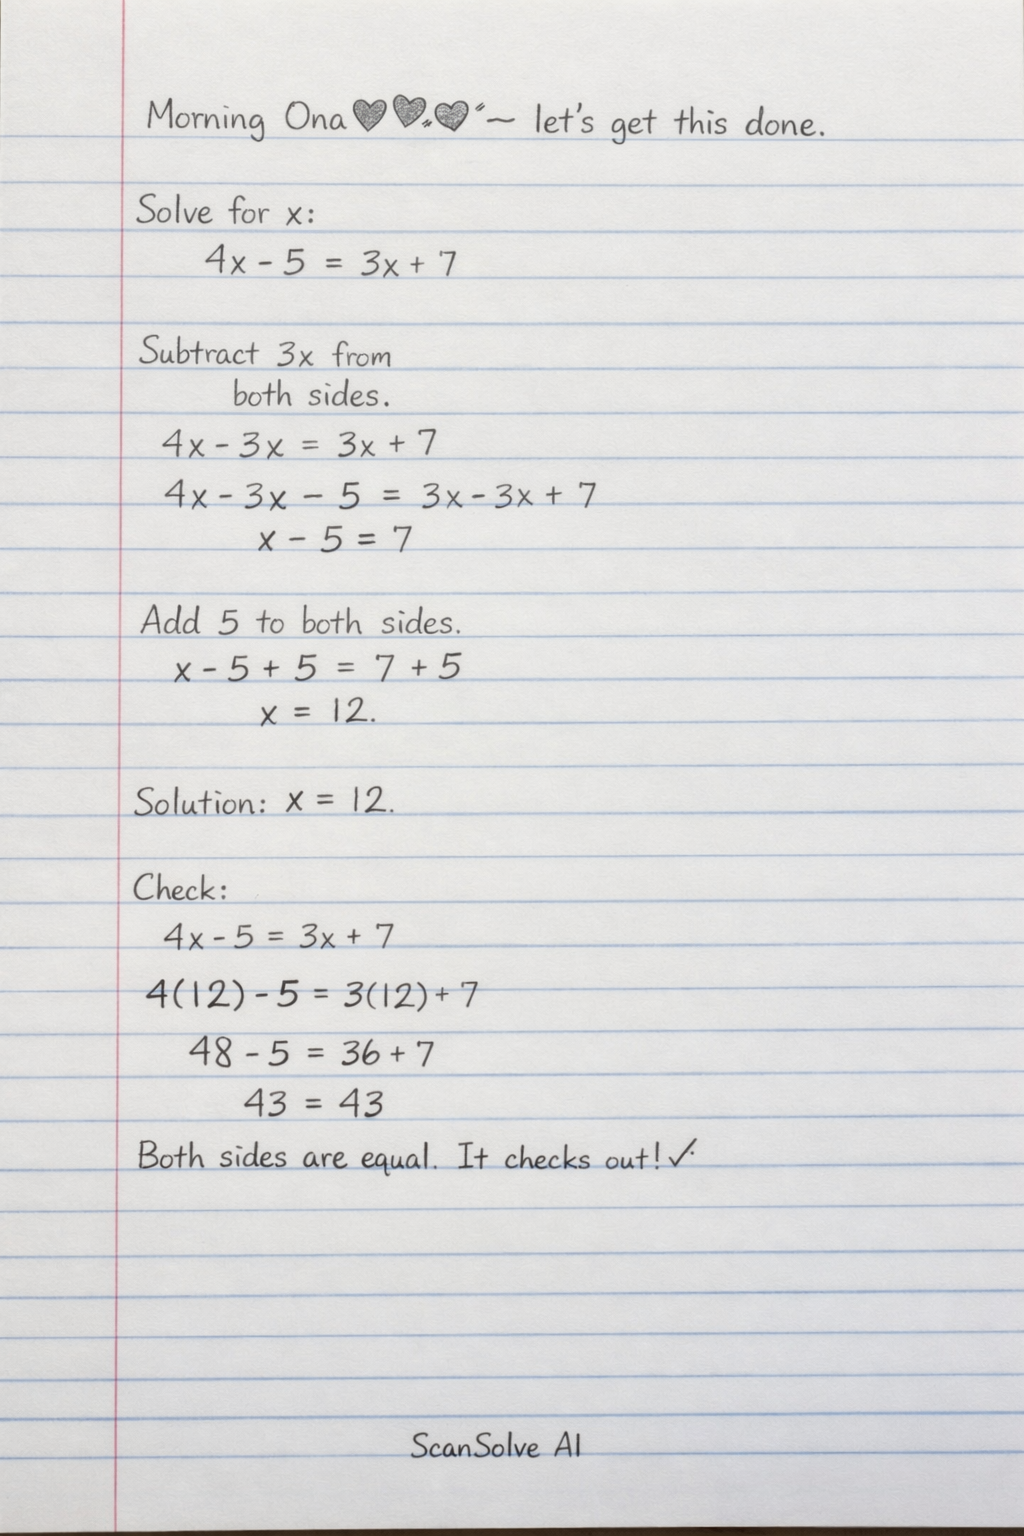 Morning Ona🖤🖤🖤 ~ let's get this done.
Solve for x:
4x - 5 = 3x + 7
Subtract 3x from
both sides.
4x - 3x = 3x + 7
4x - 3x - 5 = 3x - 3x + 7
x - 5 = 7
Add 5 to both sides.
x - 5 + 5 = 7 + 5
x = 12.
Solution: x = 12.
Check:
4x - 5 = 3x + 7
4(12) - 5 = 3(12) + 7
48 - 5 = 36 + 7
43 = 43
Both sides are equal. It checks out! ✓
ScanSolve AI